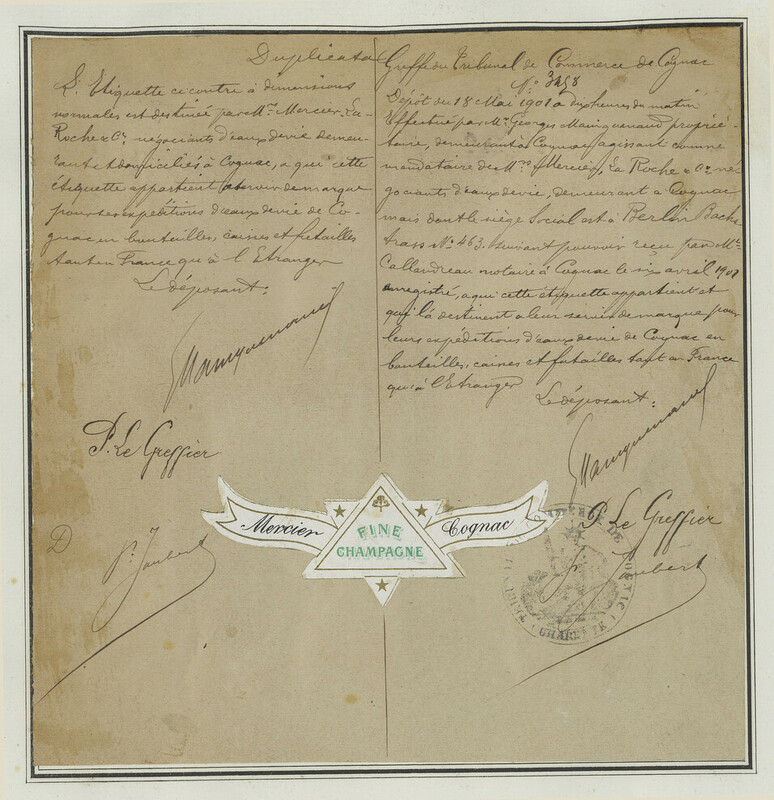 Duplicata
L'Etiquette ci contre à dimensions
normales est destinée par Mrs Mercier, La-
Roche & Cie négociants d'eaux de vie demeu-
rant et domiciliés à Cognac, a qui cette
étiquette appartient a servir de marque
pour ses expéditions d'eaux de vie de Co-
gnac en bouteilles, caisses et futailles
tant en France qu'à l'Etranger
Le déposant:
P. Le Greffier
D
Pr Joubert
Greffe du Tribunal de Commerce de Cognac
No 3458
Dépôt du 18 Mai 1901 à dix heures du matin
Effectué par Mr Georges Mainguenaud proprié-
taire, demeurant à Cognac agissant comme
mandataire de Mrs Mercier, La Roche & Cie né-
gociants d'eaux de vie, demeurant a Cognac
mais dont le siège Social est à Berlin Bachs
trass No 463. suivant pouvoir reçu par Me
Callandreau notaire à Cognac le six avril 1901
enregistré, a qui cette étiquette appartient et
qu'il a destinent a leur servir de marque pour
leurs expéditions d'eaux de vie de Cognac en
bouteilles, caisses et futailles tant en France
qu'à l'Etranger
Le déposant:
P. Le Greffier
Joubert
Mercier
FINE
CHAMPAGNE
Cognac
TRIBUNAL DE COMMERCE DE COGNAC
(CHARENTE)